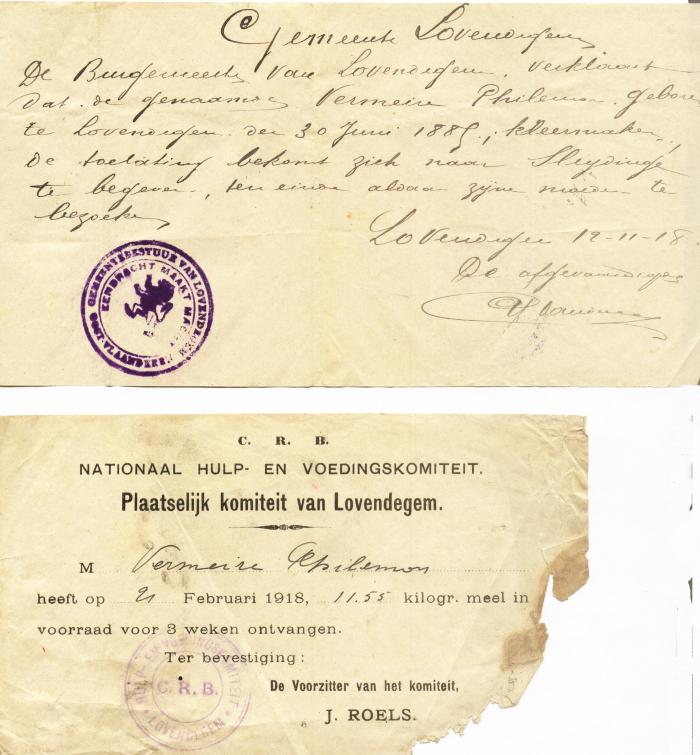 Gemeente Lovendegem
De Burgemeester van Lovendegem, verklaart
dat de genaamde Vermeire Philemon, geboren
te Lovendegem den 30 Juni 1885, kleermaker,
De toelating bekomt zich naar Sleydinge
te begeven, ten einde aldaar zijne moeder te
bezoeken
Lovendegem 12-11-18.
De afgevaardigde
GEMEENTEBESTUUR VAN LOVENDEGEM
OOST-VLAANDEREN
EENDRACHT MAAKT MACHT
C. R. B.
NATIONAAL HULP- EN VOEDINGSKOMITEIT.
Plaatselijk komiteit van Lovendegem.
M Vermeire Philemon
heeft op 21 Februari 1918, 11.55 kilogr. meel in
voorraad voor 3 weken ontvangen.
Ter bevestiging :
De Voorzitter van het komiteit,
J. ROELS.
HULP- EN VOEDINGSKOMITEIT
C. R. B.
LOVENDEGEM